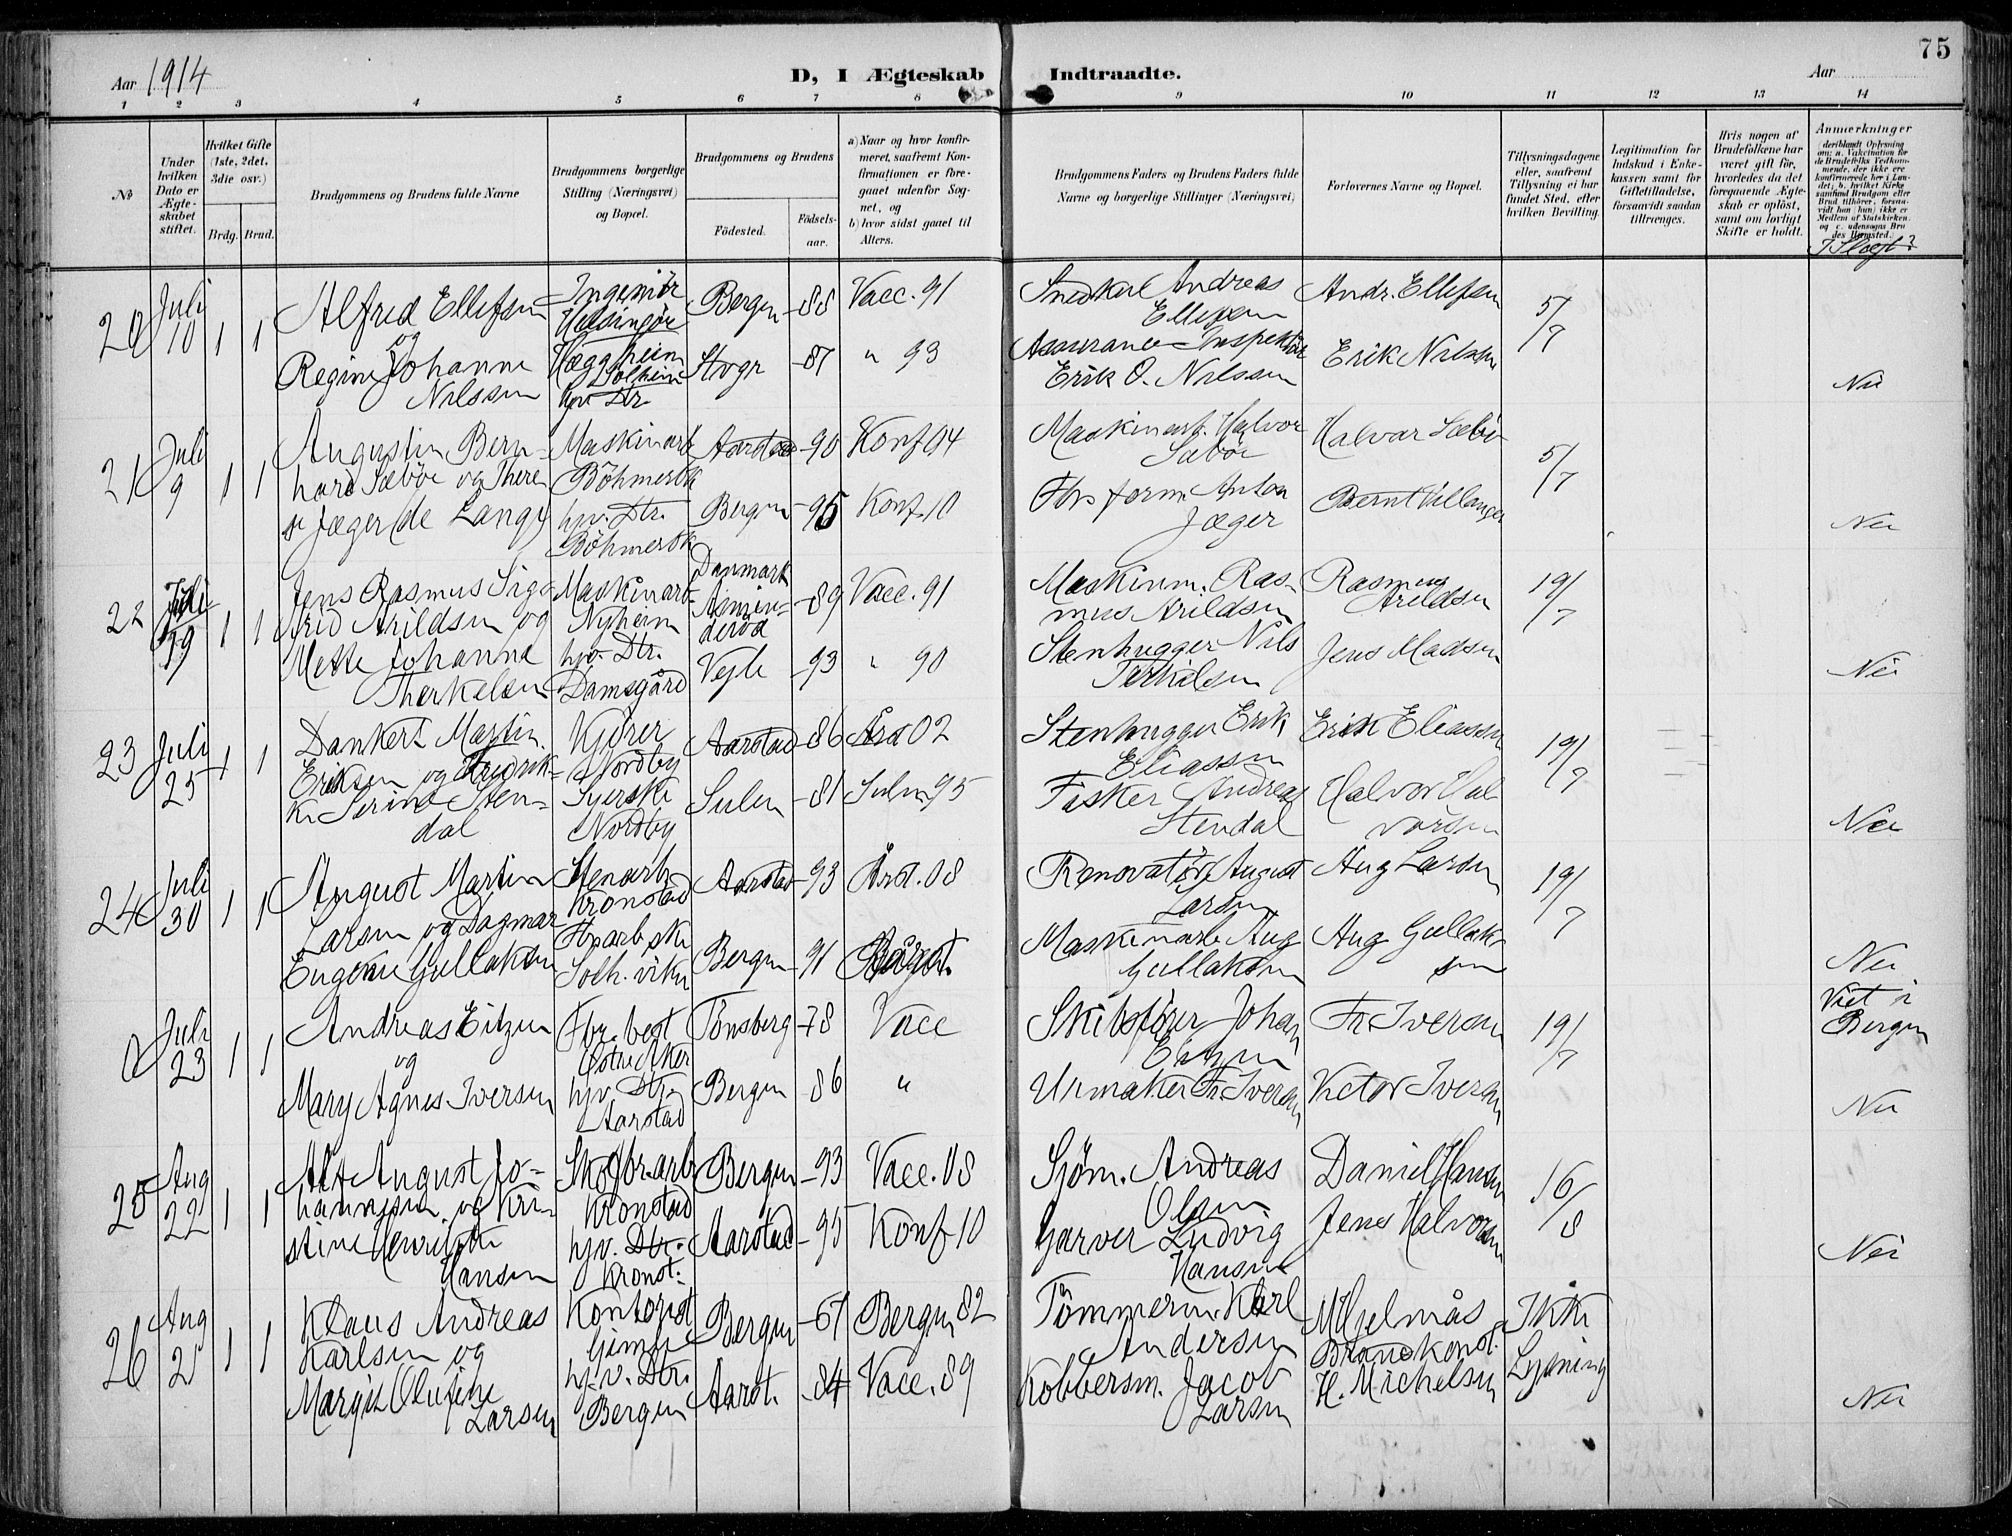 75
Aar 1914
D, I Ægteskab Indtraadte.
Aar
1 2 3 4 5 6 7 8 9 10 11 12 13 14
No
Under hvilken Dato er Ægteskabet stiftet.
Hvilket Gifte (1ste, 2det, 3die osv.)
Brdg. Brud.
Brudgommens og Brudens fulde Navne
Brudgommens borgerlige Stilling (Næringsvei) og Bopæl.
Brudgommens og Brudens
Fødested.
Fødselsaar.
a) Naar og hvor konfirmeret, saafremt Konfirmationen er foregaaet udenfor Sognet, og
b) hvor sidst gaaet til Alters.
Brudgommens Faders og Brudens Faders fulde Navne og borgerlige Stillinger (Næringsvei)
Forlovernes Navne og Bopæl.
Tillysningsdagene eller, saafremt Tillysning ei har fundet Sted, efter hvilken Bevilling.
Legitimation for Indskud i Enkekassen samt for Giftetilladelse, forsaavidt saadan tiltrænges.
Hvis nogen af Brudefolkene har været gift før, hvorledes da det foregaaende Ægteskab er opløst, samt om lovligt Skifte er holdt.
Anmærkninger
(deriblandt Oplysning om: a. Vakcination for de Brudefolks Vedkommende, der ikke ere konfirmerede her i Landet; b. hvilket Kirkesamfund Brudgom eller Brud tilhører, forsaavidt han (hun) ikke er Medlem af Statskirken, og c. udensogns Brudes Hjemsted.)
I Slægt?
20 Juli 10 1 1
Alfred Ellefsen
og
Regine Johanne
Nilssen
Ingeniør
Helsingør
Hæggheim
Solheim
hjv. Dtr.
Bergen -88 Vacc. 91
Stvgr -87 " 93
Snedker Andreas
Ellefsen
Assurance-Inspektør
Erik O. Nilssen
Andr. Ellefsen
Erik Nilssen
5/7
Nei
21 Juli 9 1 1
Augustin Bern-
hard Sæbøe og There
se Jæger (de Lange)
Maskinarb
Böhmersk
hjv. Dtr.
Böhmersk
Aarstad -90 Konf 04
Bergen -95 Konf. 10
Maskinarb. Halvor
Sæbøe
Fbr form. Anton
Jæger
Halvar Sæbø
Bernt Villanger
5/7
Nei
22 Juli 19 1 1
Jens Rasmus Sig-
frid Arildsen og
Mette Johanne
Therkelsen
Maskinarb
Nyheim
hjv. Dtr.
Damsgård
Danmark
-89 Vacc. 91
Vejle -93 " 90
Maskinm. Ras-
mus Arildsen
Stenhugger Nils
Terkilsen
Rasmus
Arildsen
Jens Madsen
19/7
Nei
23 Juli 25 1 1
Dankert Martin
Eriksen og Fredrik-
ke Serine Sten-
dal
Kjører
Nordby
Syerske
Nordby
Aarstad -86 Årst 02
Sulen -81 Sulen 95
Stenhugger Erik
Eliassen
Fisker Andreas
Stendal
Erik Eliassen
Halvor Hal
vorsen
19/7
Nei
24 Juli 30 1 1
August Martin
Larsen og Dagmar
Eugenie Gullaksen
Stenarb
Kronstad
Fbrarbske
Solh. viken
Aarstad -93 Årst. 08
Bergen -91
Renovatør August
Larsen
Maskinarb Aug
Gullaksen
Aug Larsen
Aug Gullak
sen
19/7
Nei
0 Juli 23 1 1
Andreas Eitzen
og
Mary Agnes Iversen
Fbr. best
Østre Aker
hjv. Dtr.
Aarstad
Tønsberg -78 Vacc
Bergen -86 "
Skibsfører Johan
Eitzen
Urmaker Fr. Iversen
Fr. Iversen
Victor Iversen
19/7
Viet i
Bergen
Nei
25 Aug 22 1 1
Alf August Jo-
hannesen og Kri-
stine Henrikke
Hansen
Skofbr.arb
Kronstad
hjv. Dtr.
Kronst.
Bergen -93 Vacc. 08
Aarstad -95 Konf 10
Sjøm. Andreas
Olsen
Garver Ludvig
Hansen
Daniel Hansen
Jens Halvorsen
16/8
Nei
26 Aug 21 1 1
Klaus Andreas
Karlsen og
Margit Olufine
Larsen
Kontorist
hjv. Dtr.
Bergen
Bergen -67 Bergen 82
Aarst. -84 Vacc. 89
Tømmerm. Karl
Andersen
Kobbersm. Jacob
Larsen
M Hjelmås
Brandkonst.
H. Michelsen
Ikke
Lysning
Nei